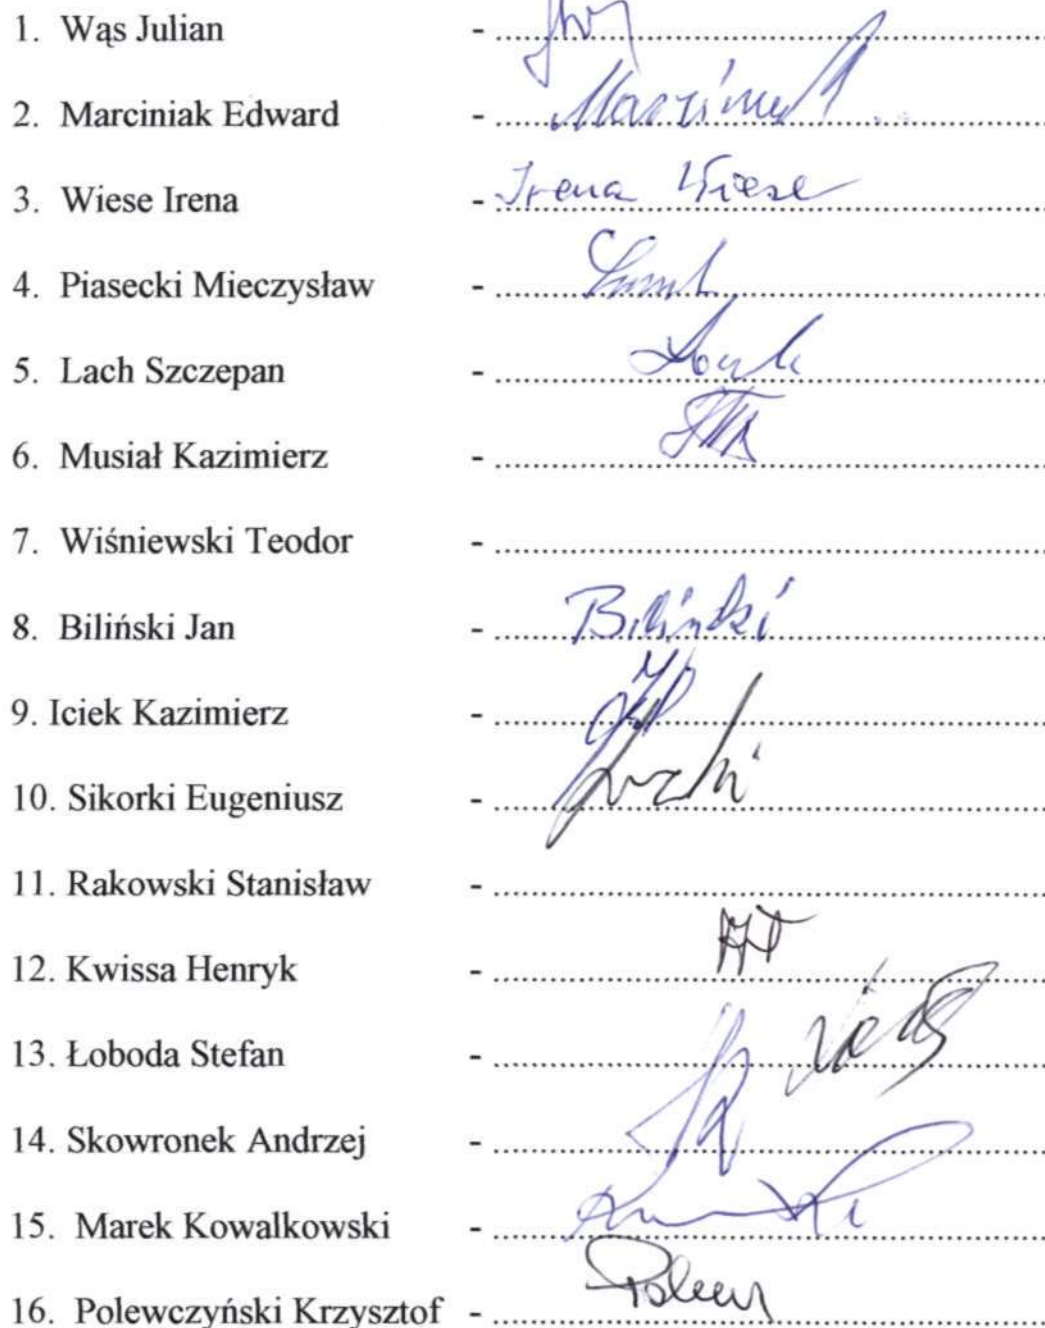 1. Wąs Julian - ........................................
2. Marciniak Edward - ........................................
3. Wiese Irena - Irena Wiese
4. Piasecki Mieczysław - ........................................
5. Lach Szczepan - ........................................
6. Musiał Kazimierz - ........................................
7. Wiśniewski Teodor - ........................................
8. Biliński Jan - Biliński
9. Iciek Kazimierz - ........................................
10. Sikorki Eugeniusz - ........................................
11. Rakowski Stanisław - ........................................
12. Kwissa Henryk - ........................................
13. Łoboda Stefan - ........................................
14. Skowronek Andrzej - ........................................
15. Marek Kowalkowski - ........................................
16. Polewczyński Krzysztof - ........................................